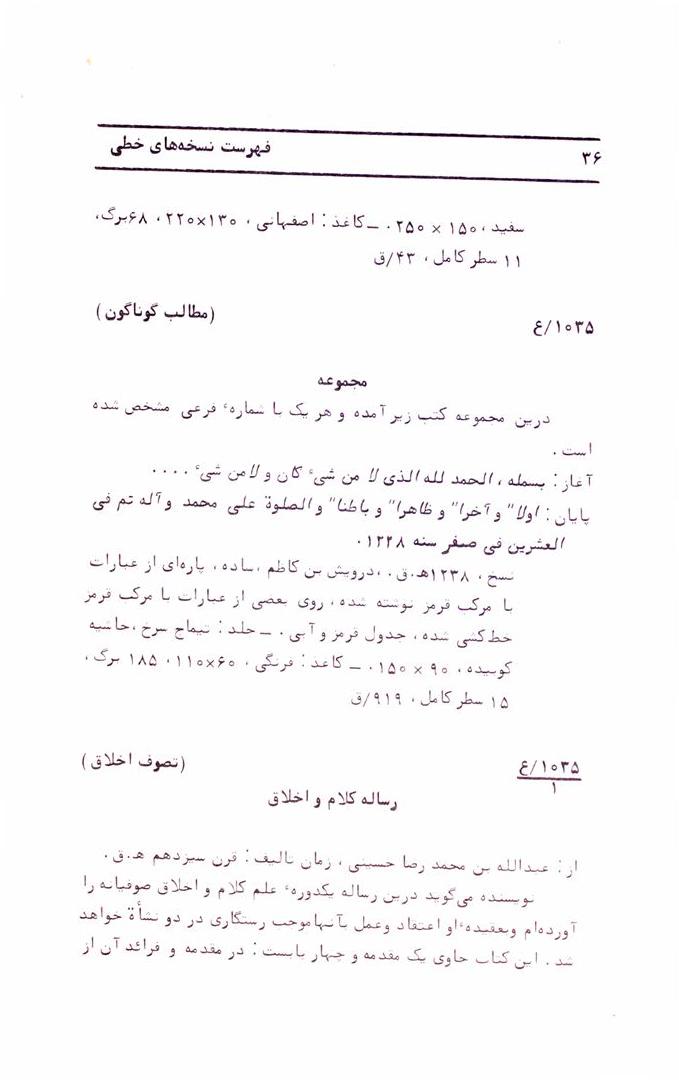 ۳۶
فهرست نسخه‌های خطی
سفید، ۱۵۰ × ۲۵۰. ــ کاغذ: اصفهانی، ۱۳۰×۲۲۰، ۶۸برگ،
۱۱ سطر کامل، ۴۳/ق
۱۰۳۵/ع
(مطالب گوناگون)
مجموعه
درین مجموعه کتب زیر آمده و هر یک با شمارهٔ فرعی مشخص شده
است.
آغاز: بسمله، الحمد لله الذی لا من شیء کان و لا من شیء ....
پایان: اولا" و آخرا" و ظاهرا" و باطنا" والصلوة علی محمد و آله تم فی
العشرین فی صفر سنه ۱۲۲۸.
نسخ، ۱۲۳۸ه‍.ق.،درویش بن کاظم،ساده، پاره‌ای از عبارات
با مرکب قرمز نوشته شده، روی بعضی از عبارات با مرکب قرمز
خط‌کشی شده، جدول قرمز و آبی. ــ جلد: تیماج سرخ،حاشیه
کوبیده، ۹۰ × ۱۵۰. ــ کاغذ: فرنگی، ۶۰×۱۱۰، ۱۸۵ برگ،
۱۵ سطر کامل، ۹۱۹/ق
۱۰۳۵/ع
۱
(تصوف اخلاق)
رساله کلام و اخلاق
از: عبدالله بن محمد رضا حسینی، زمان تالیف: قرن سیزدهم ه‍.ق.
نویسنده می‌گوید درین رساله یکدورهٔ علم کلام و اخلاق صوفیانه را
آورده‌ام وبعقیدهٔ او اعتقاد وعمل بآنهاموجب رستگاری در دو نشأة خواهد
شد. این کتاب حاوی یک مقدمه و چهار بابست: در مقدمه و فرائد آن از